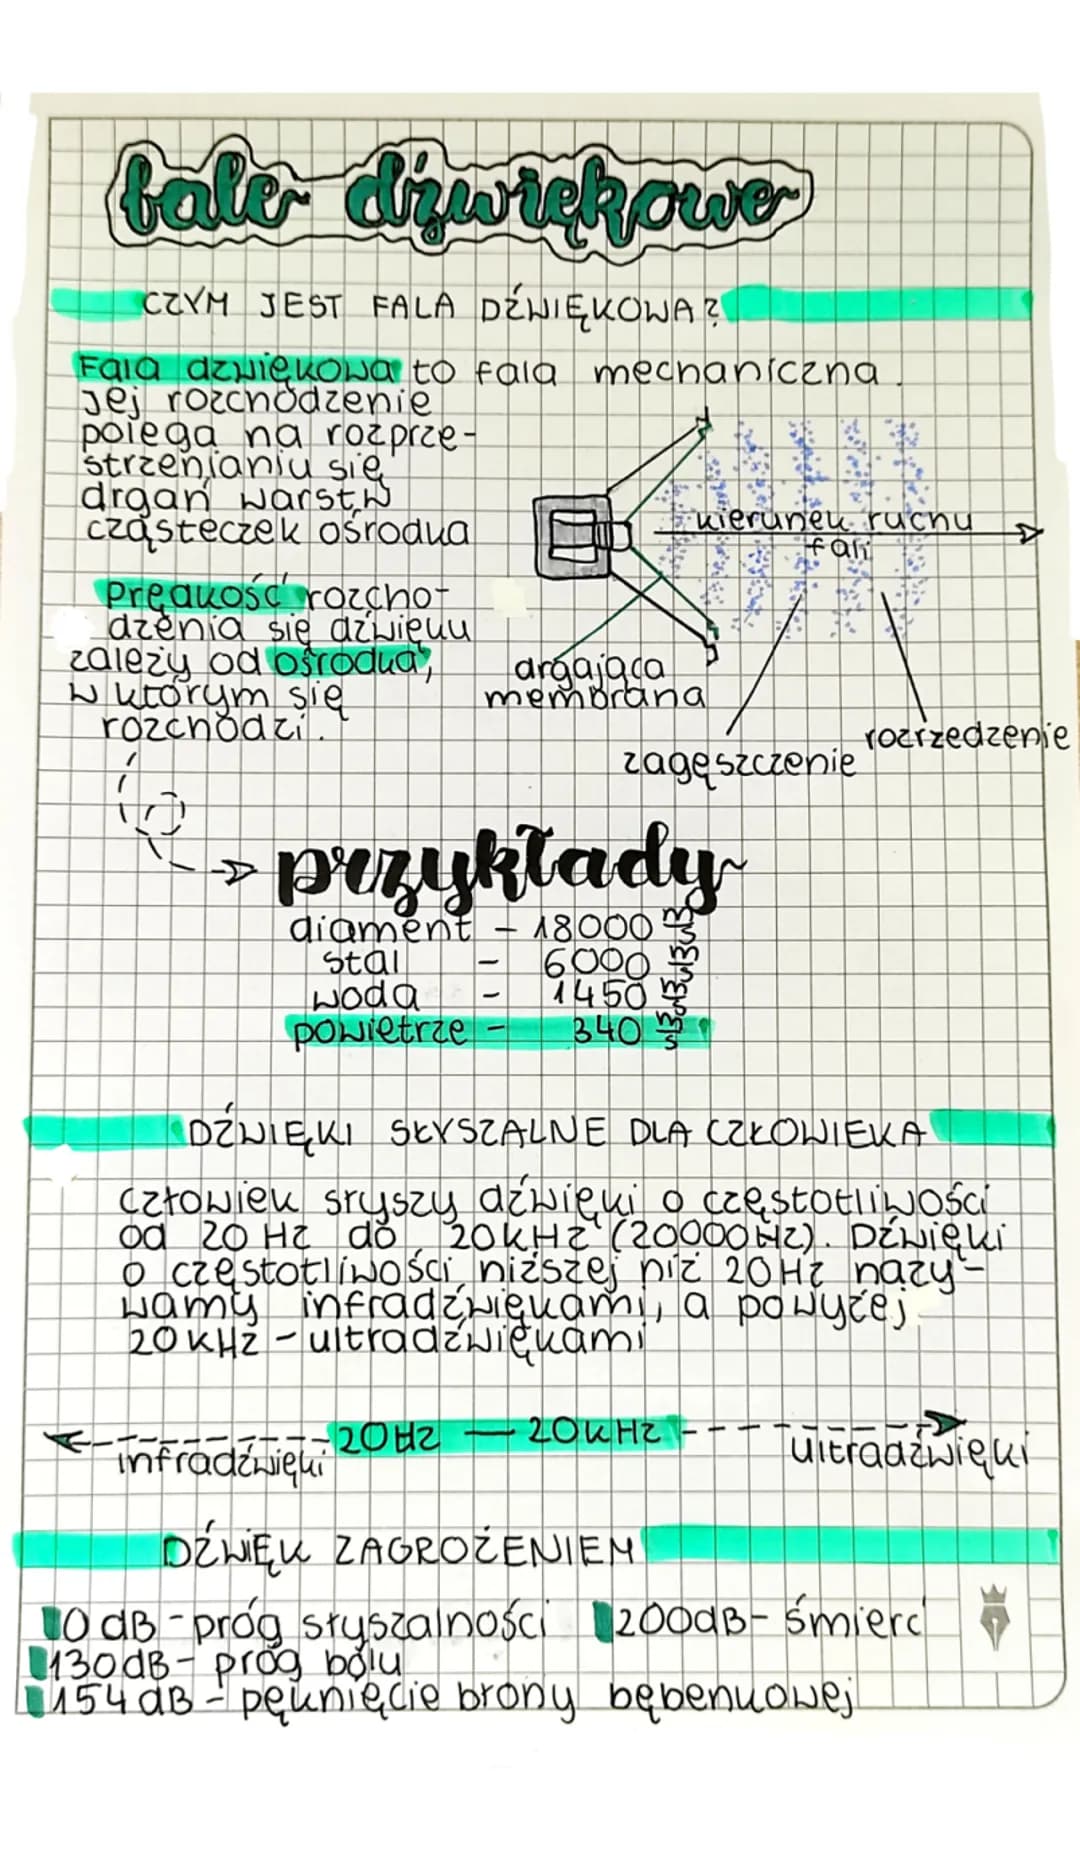 fale dźwiękowe
CZYM JEST FALA DŹWIĘKOWA?
Fala dzwiękowa to fala mechaniczna.
Jej rozchodzenie
polega na rozprze-
strzenianiu się
drgań warstw
cząsteczek ośrodka
kierunek ruchu
fali
Prędkość rozcho-
dzenia się dźwięku
zależy od ośrodka,
w którym się
rozchodzi.
drgająca
membrana
zagęszczenie
rozrzedzenie
przykłady
diament - 18000 m/s
stal - 6000 m/s
woda - 1450 m/s
powietrze - 340 m/s
DŹWIĘKI SŁYSZALNE DLA CZŁOWIEKA
Człowiek słyszy dźwięki o częstotliwości
od 20 Hz do 20kHz (20000Hz). Dźwięki
o częstotliwości niższej niż 20Hz nazy-
wamy infradźwiękami, a powyżej
20kHz - ultradźwiękami
infradźwięki
20Hz — 20kHz
ultradźwięki
DŹWIĘK ZAGROŻENIEM
0 dB - próg słyszalności
200dB - śmierć
130dB - próg bólu
154dB - pęknięcie brony bębenkowej